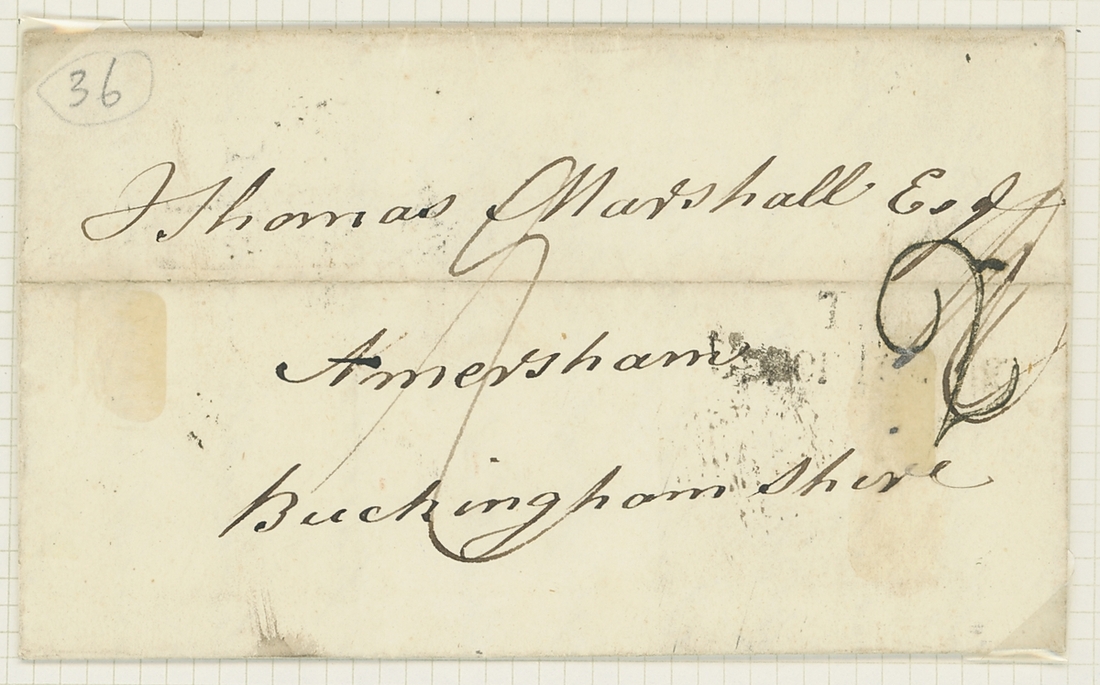 36
Thomas Marshall Esq
Amersham
Buckingham Shire